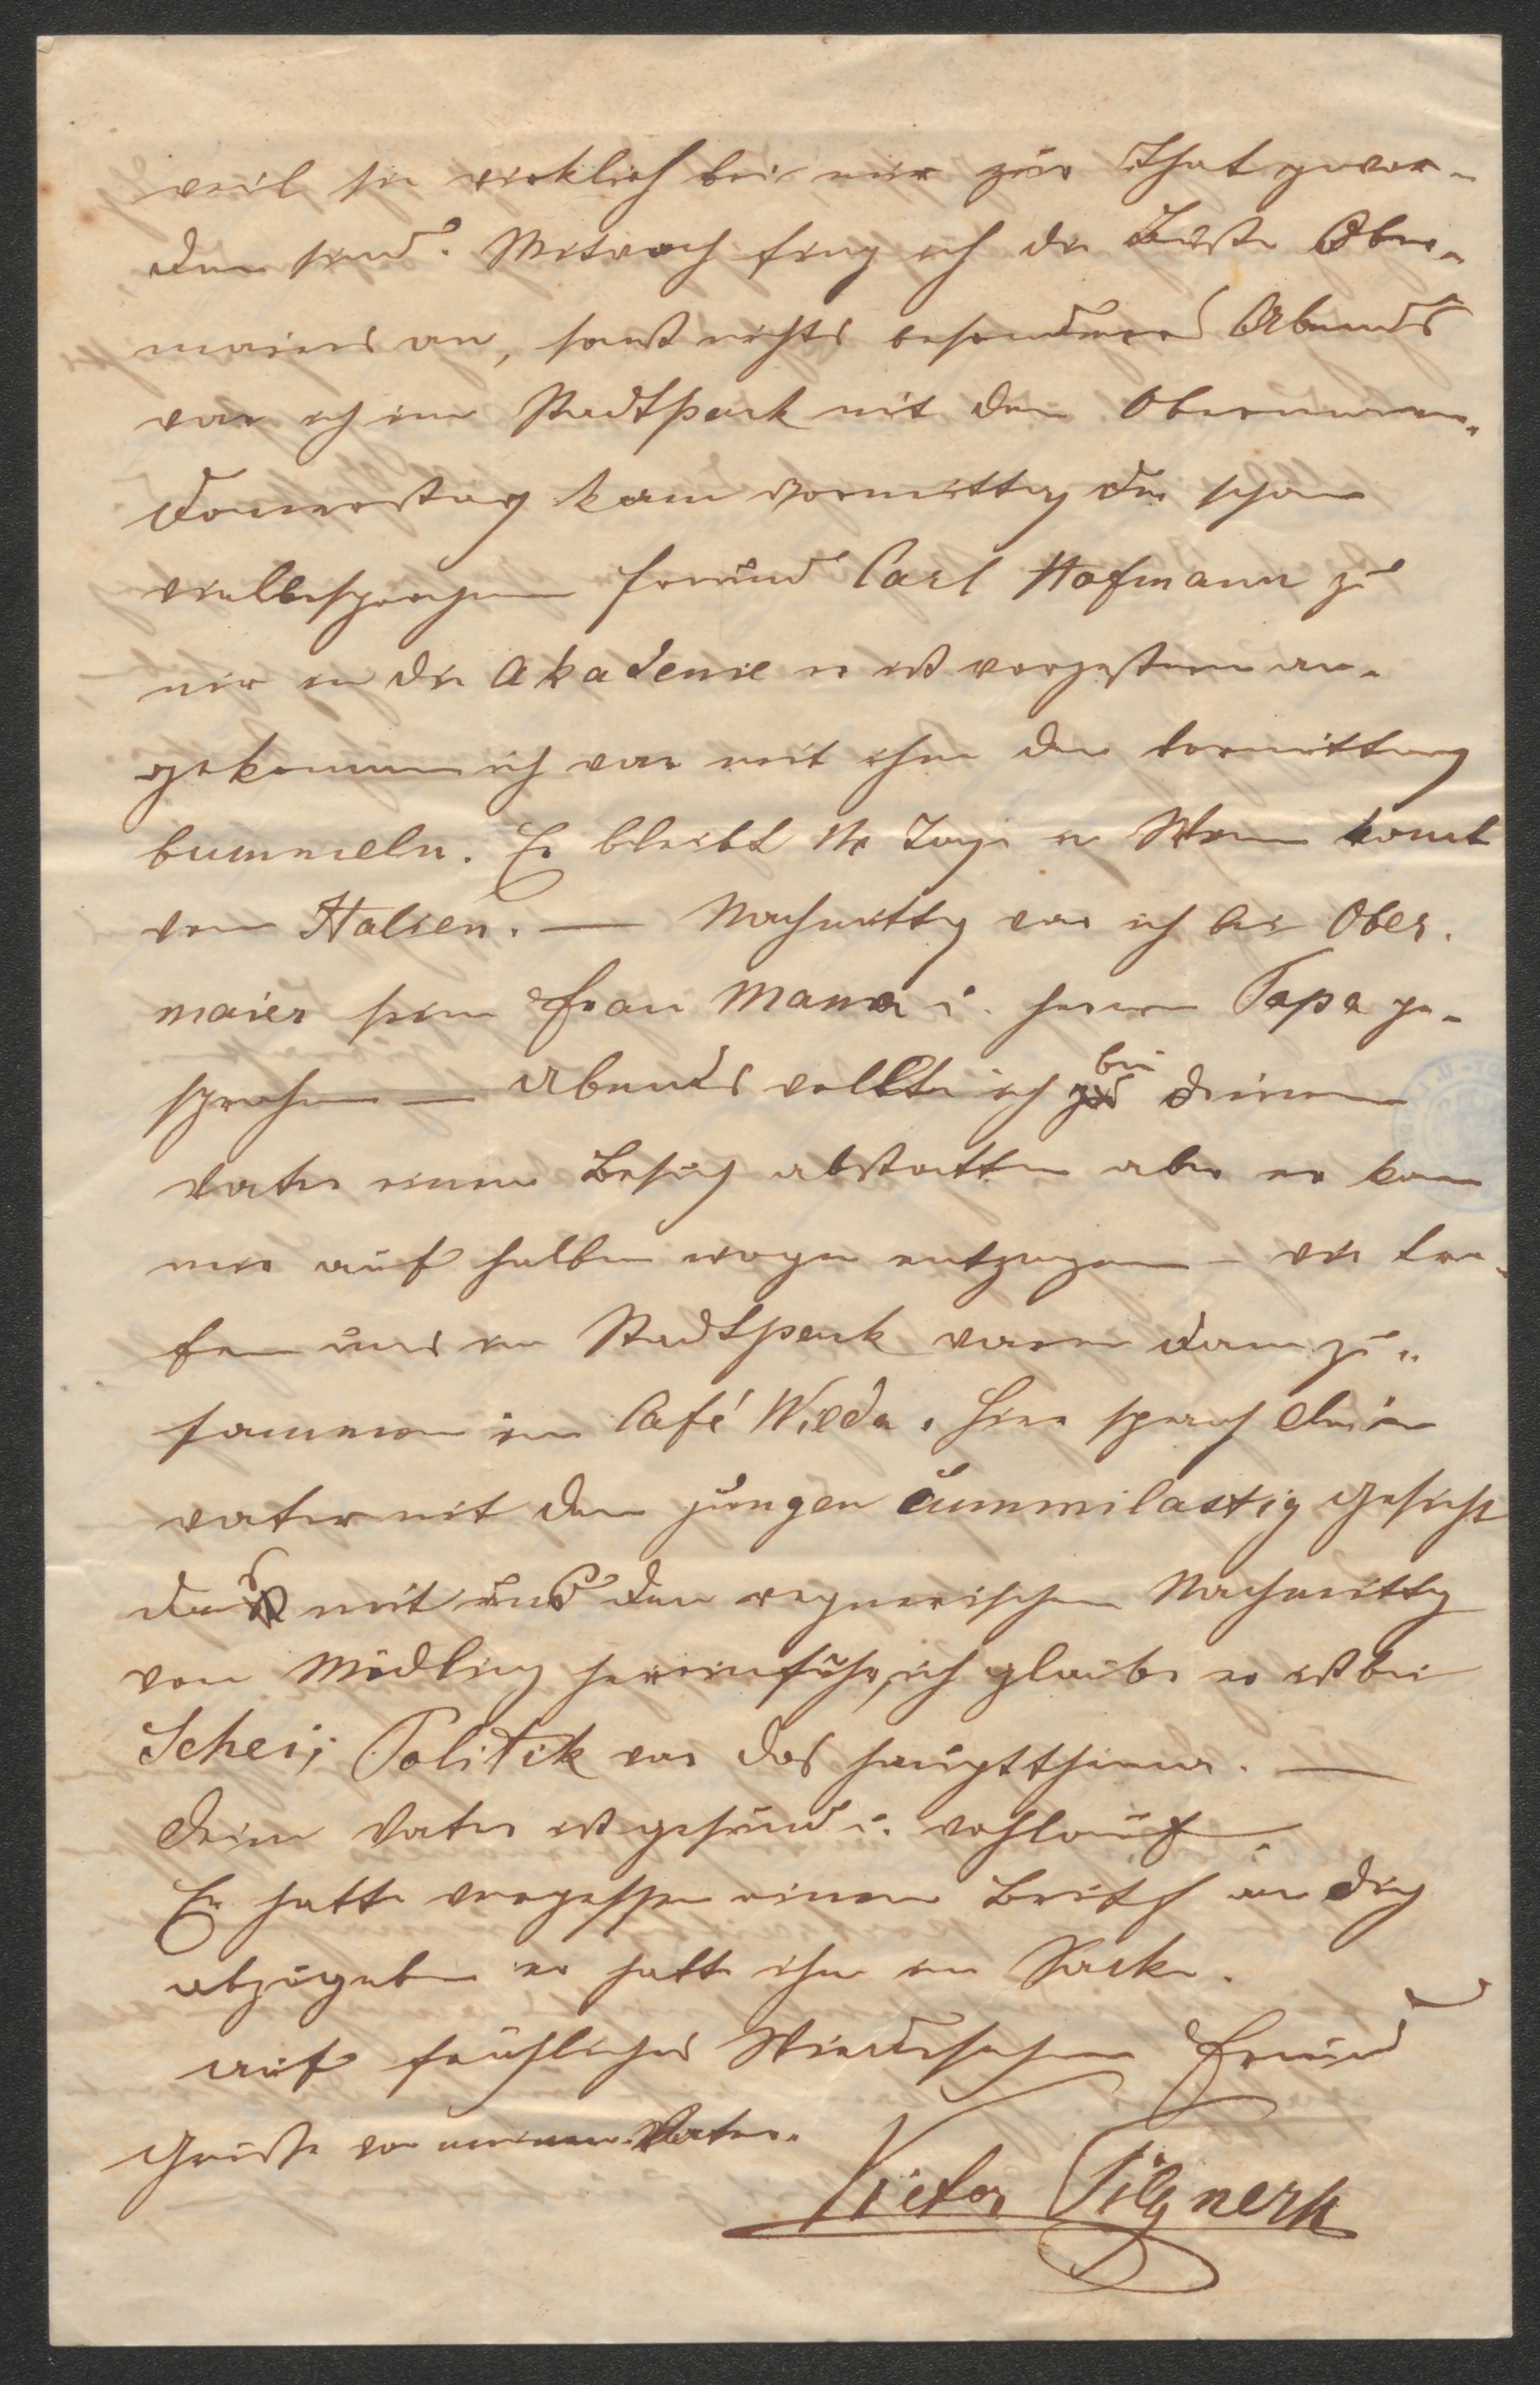 weil sie wirklich bei mir zur That gewor-
den sind. Mitwoch fing ich die Büste Ober-
maiers an, sonst nichts besonderes Abends
war ich im Stadtpark mit den
Donnerstag kam Vormittag der schon
vielbesprochene Freund Carl Hofmann zu
mir in die Akademie er ist vorgestern an-
gekommen ich war mit ihm den Vormittag
bummeln. Er bleibt 14 Tage in Wien komt
von Italien. — Nachmittg war ich bei Ober.
maier seine Frau Mama u. Herrn Papa ge-
sprochen — Abends wollte ich bei Deinem
Vater einen Besuch abstatten aber er kam
mir auf halben Wege entgegen – wir tra-
fen uns im Stadtpark waren dann zu-
sammen im Café Wieda. Hier sprach Dein
Vater mit dem jungen Gummilastig Gesicht
das mit uns den regnerischen Nachmittg
von Mödling hereinfuhr, ich glaube er ist bei
Schei; Politik war das Hauptthema. —
Dein Vater ist gesund u. wohlauf.
Er hatte vergessen einen Brief an Dich
abzugeben er hatte ihn im Sacke.
Auf fröhliches Wiedersehen Freund
Grüsse von meinem Vater.
Victor Tilgner